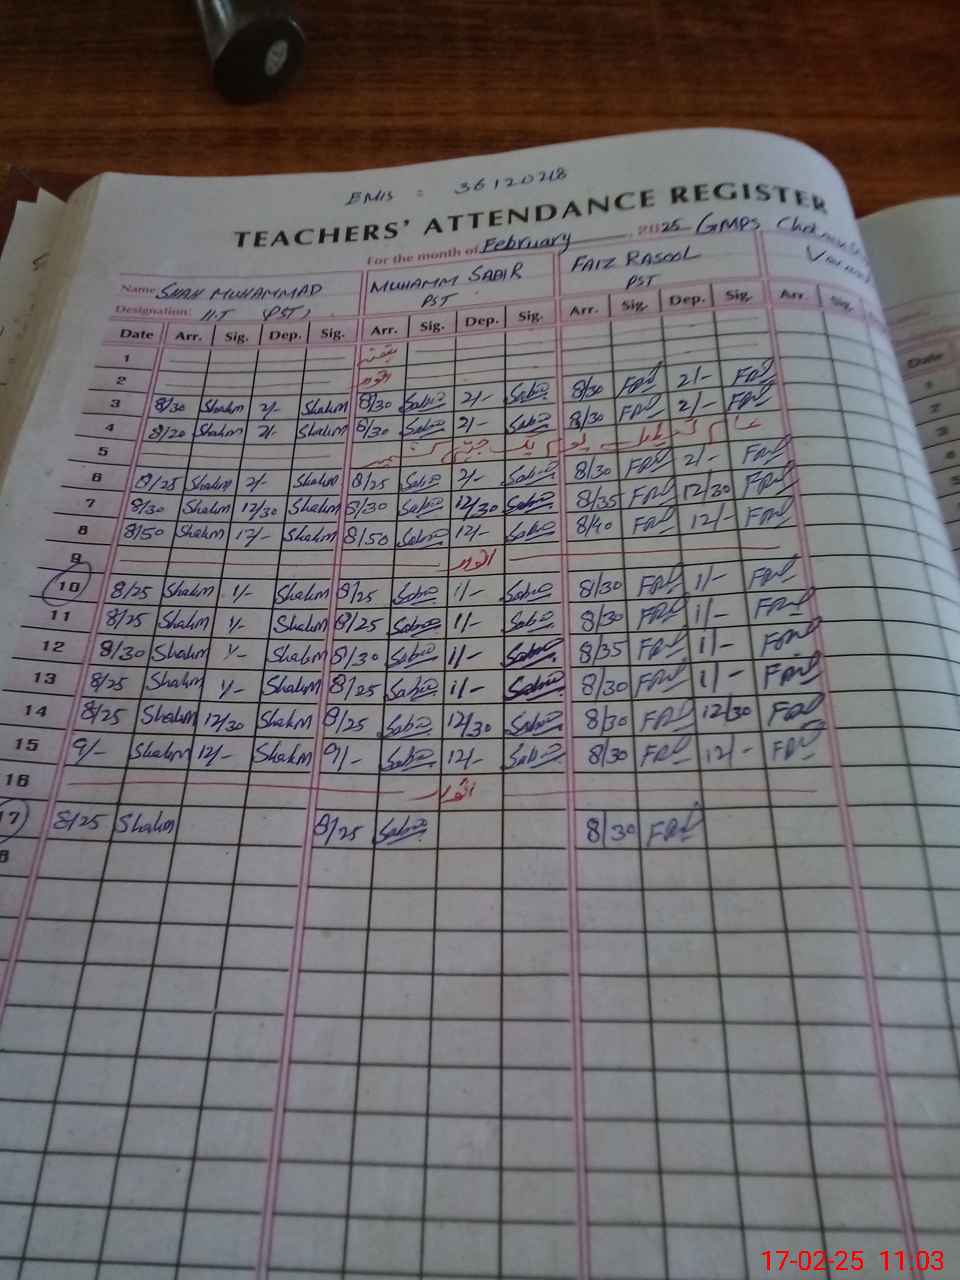 EMIS : 36120218
TEACHERS' ATTENDANCE REGISTER
For the month of February 2025 GMPS
Name: SHAH MUHAMMAD MUHAMM SABIR FAIZ RASOOL
Designation: H.T (PST) PST PST
Date Arr. Sig. Dep. Sig. Arr. Sig. Dep. Sig. Arr. Sig. Dep. Sig. Arr. Sig.
1 ہفتہ
2 اتوار
3 8/30 Shahm 2/- Shahm 8/30 Sabir 2/- Sabir 8/30 FRD 2/- FRD
4 8/20 Shahm 2/- Shahm 8/30 Sabir 2/- Sabir 8/30 FRD 2/- FRD
5 عام تعطیل یوم یک جہتی کشمیر
6 8/25 Shahm 2/- Shahm 8/25 Sabir 2/- Sabir 8/30 FRD 2/- FRD
7 8/30 Shahm 12/30 Shahm 8/30 Sabir 12/30 Sabir 8/35 FRD 12/30 FRD
8 8/50 Shahm 12/- Shahm 8/50 Sabir 12/- Sabir 8/40 FRD 12/- FRD
9 اتوار
10 8/25 Shahm 1/- Shahm 8/25 Sabir 1/- Sabir 8/30 FRD 1/- FRD
11 8/25 Shahm 1/- Shahm 8/25 Sabir 1/- Sabir 8/30 FRD 1/- FRD
12 8/30 Shahm 1/- Shahm 8/30 Sabir 1/- Sabir 8/35 FRD 1/- FRD
13 8/25 Shahm 1/- Shahm 8/25 Sabir 1/- Sabir 8/30 FRD 1/- FRD
14 8/25 Shahm 12/30 Shahm 8/25 Sabir 12/30 Sabir 8/30 FRD 12/30 FRD
15 9/- Shahm 12/- Shahm 9/- Sabir 12/- Sabir 8/30 FRD 12/- FRD
16 اتوار
17 8/25 Shahm 8/25 Sabir 8/30 FRD
8
Date
1
2
3
4
17-02-25 11:03